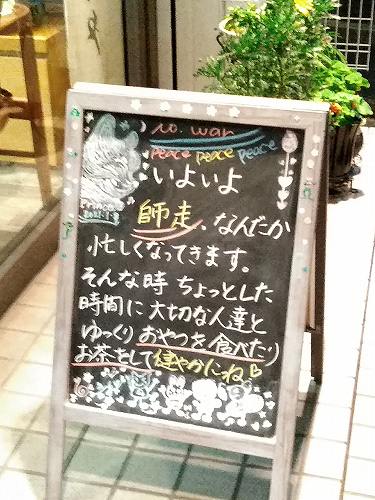 no. war
peace peace peace
いよいよ
師走、なんだか
忙しくなってきます。
そんな時 ちょっとした
時間に 大切な人達と
ゆっくり おやつを食べたり
お茶をして健やかにね♡